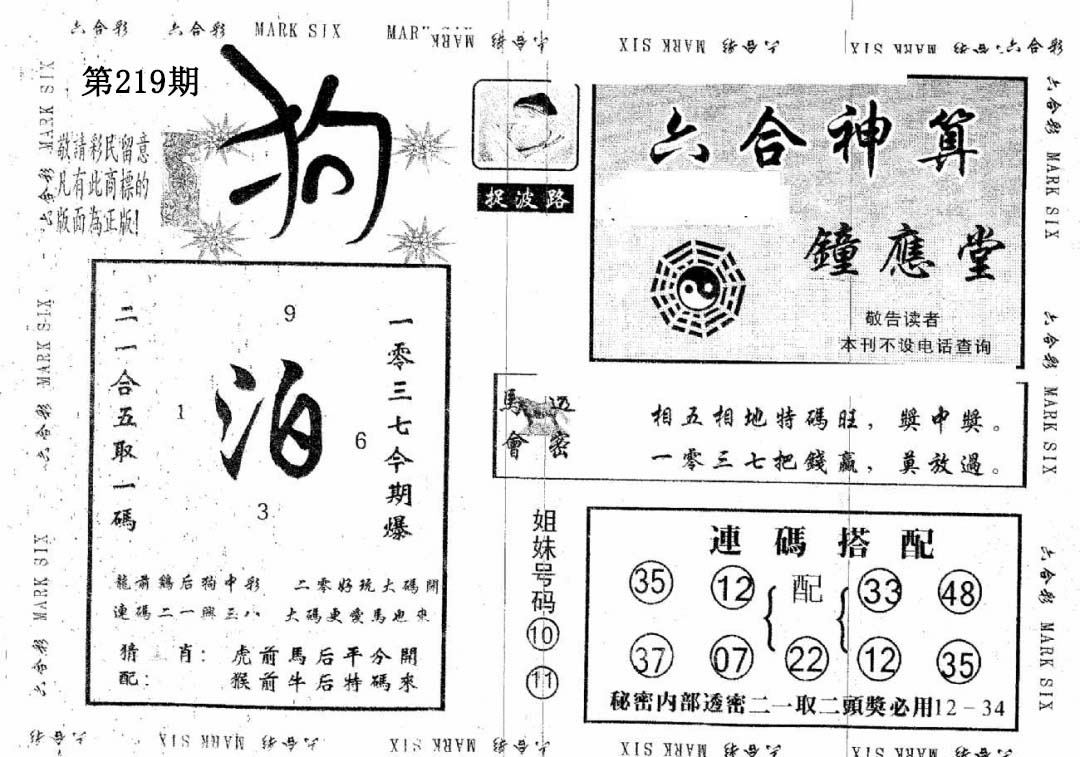 六合彩 六合彩 MARK SIX
第219期
狗
敬請彩民留意
凡有此商標的
版面為正版!
捉波路
六合神算
鐘應堂
敬告读者
本刊不设电话查询
二一合五取一碼
9
1
泊
6
3
一零三七今期爆
龍前鷄后狗中彩 二零好玩大碼開
連碼二一興三八 大碼更愛馬也來
猜 肖: 虎前馬后平分開
配: 猴前牛后特碼來
馬會透密
相五相地特碼旺,獎中獎。
一零三七把錢贏,莫放過。
姐妹号码
10
11
連碼搭配
35 12 配 33 48
37 07 22 12 35
秘密内部透密二一取二頭獎必用12-34
MARK SIX 六合彩 MARK SIX 六合彩 MARK SIX
六合彩 MARK SIX 六合彩 MARK SIX 六合彩 MARK SIX